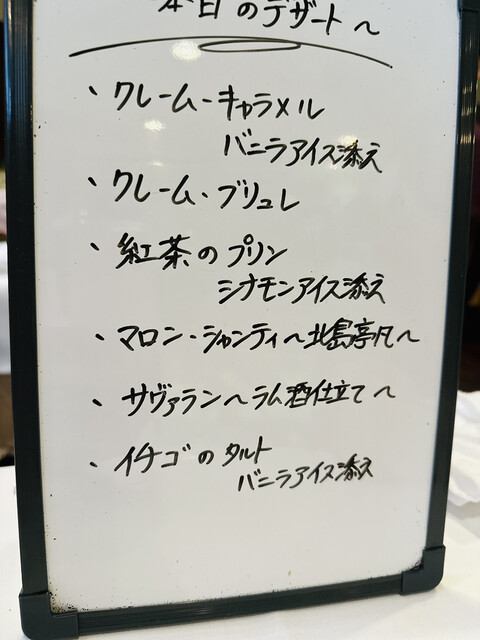 本日のデザート〜
・クレーム・キャラメル
バニラアイス添え
・クレーム・ブリュレ
・紅茶のプリン
シナモンアイス添え
・マロン・シャンティ〜北島亭風〜
・サヴァラン〜ラム酒仕立て〜
・イチゴのタルト
バニラアイス添え